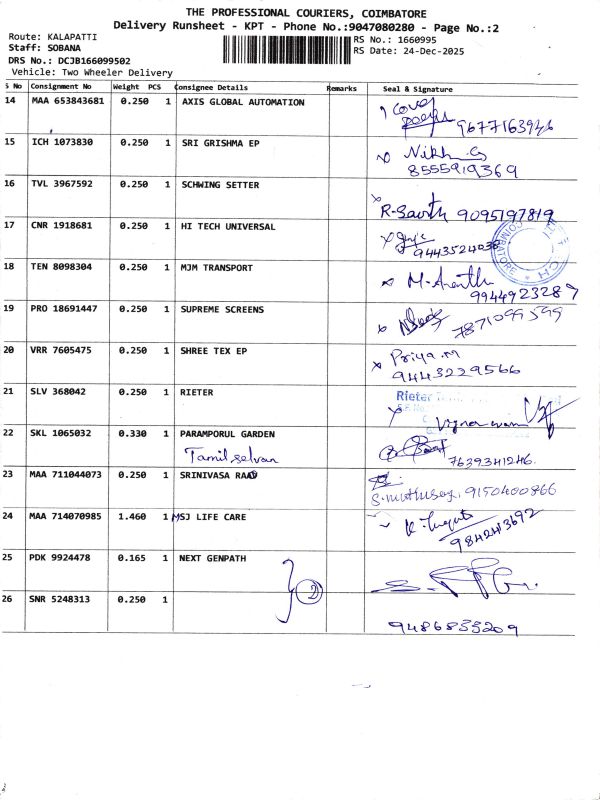 THE PROFESSIONAL COURIERS, COIMBATORE
Delivery Runsheet - KPT - Phone No.:9047080280 - Page No.:2
Route: KALAPATTI
Staff: SOBANA
DRS No.: DCJB166099502
Vehicle: Two Wheeler Delivery
RS No.: 1660995
RS Date: 24-Dec-2025
S No Consignment No Weight PCS Consignee Details Remarks Seal & Signature
14 MAA 653843681 0.250 1 AXIS GLOBAL AUTOMATION
9677163946
15 ICH 1073830 0.250 1 SRI GRISHMA EP
8555919369
16 TVL 3967592 0.250 1 SCHWING SETTER
9095197819
17 CNR 1918681 0.250 1 HI TECH UNIVERSAL
COIMBATORE
18 TEN 8098304 0.250 1 MJM TRANSPORT
9944923287
19 PRO 18691447 0.250 1 SUPREME SCREENS
7871099599
20 VRR 7605475 0.250 1 SHREE TEX EP
Priya.M
9443229566
21 SLV 368042 0.250 1 RIETER
Rieter
22 SKL 1065032 0.330 1 PARAMPORUL GARDEN
Tamilselvan
7639341246.
23 MAA 711044073 0.250 1 SRINIVASA RAO
9150400866
24 MAA 714070985 1.460 1 MSJ LIFE CARE
9842413692
25 PDK 9924478 0.165 1 NEXT GENPATH
2
26 SNR 5248313 0.250 1
9486833209